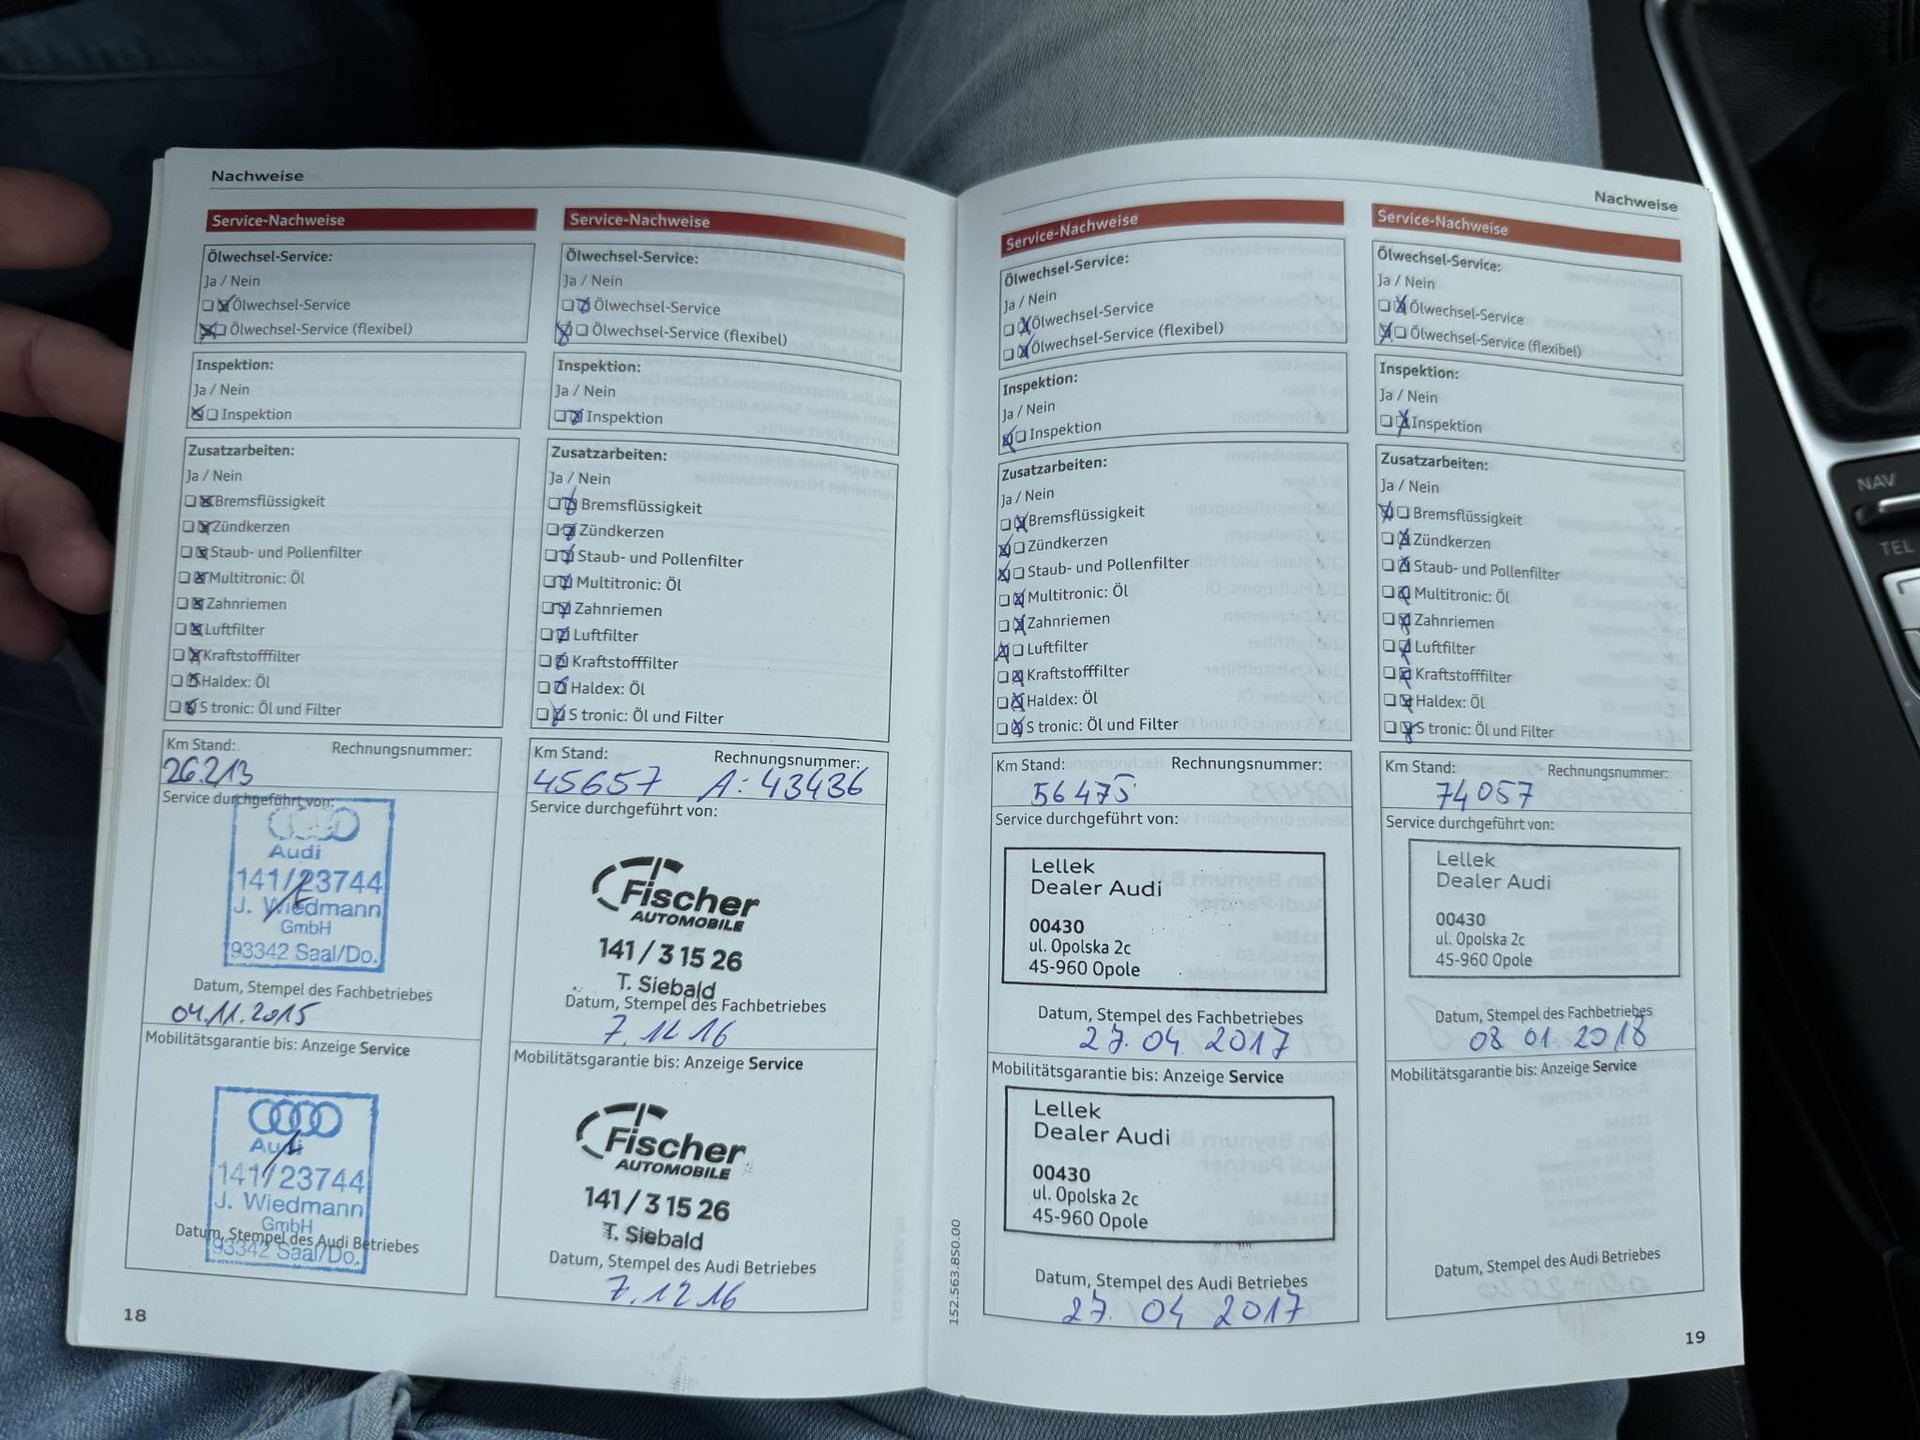 Nachweise
Service-Nachweise
Ölwechsel-Service:
Ja / Nein
Ölwechsel-Service
Ölwechsel-Service (flexibel)
Inspektion:
Ja / Nein
Inspektion
Zusatzarbeiten:
Ja / Nein
Bremsflüssigkeit
Zündkerzen
Staub- und Pollenfilter
Multitronic: Öl
Zahnriemen
Luftfilter
Kraftstofffilter
Haldex: Öl
S tronic: Öl und Filter
Km Stand: Rechnungsnummer:
26.213
Service durchgeführt von:
Audi
141/23744
J. Wiedmann
GmbH
93342 Saal/Do.
Datum, Stempel des Fachbetriebes
04.11.2015
Mobilitätsgarantie bis: Anzeige Service
Audi
141/23744
J. Wiedmann
GmbH
Datum, Stempel des Audi Betriebes
93342 Saal/Do.
18
Service-Nachweise
Ölwechsel-Service:
Ja / Nein
Ölwechsel-Service
Ölwechsel-Service (flexibel)
Inspektion:
Ja / Nein
Inspektion
Zusatzarbeiten:
Ja / Nein
Bremsflüssigkeit
Zündkerzen
Staub- und Pollenfilter
Multitronic: Öl
Zahnriemen
Luftfilter
Kraftstofffilter
Haldex: Öl
S tronic: Öl und Filter
Km Stand: Rechnungsnummer:
45657 A: 43436
Service durchgeführt von:
Fischer
AUTOMOBILE
141 / 3 15 26
T. Siebald
Datum, Stempel des Fachbetriebes
7.12 16
Mobilitätsgarantie bis: Anzeige Service
Fischer
AUTOMOBILE
141 / 3 15 26
T. Siebald
Datum, Stempel des Audi Betriebes
7.12 16
Nachweise
Service-Nachweise
Ölwechsel-Service:
Ja / Nein
Ölwechsel-Service
Ölwechsel-Service (flexibel)
Inspektion:
Ja / Nein
Inspektion
Zusatzarbeiten:
Ja / Nein
Bremsflüssigkeit
Zündkerzen
Staub- und Pollenfilter
Multitronic: Öl
Zahnriemen
Luftfilter
Kraftstofffilter
Haldex: Öl
S tronic: Öl und Filter
Km Stand: Rechnungsnummer:
56475
Service durchgeführt von:
Lellek
Dealer Audi
00430
ul. Opolska 2c
45-960 Opole
Datum, Stempel des Fachbetriebes
27. 04 2017
Mobilitätsgarantie bis: Anzeige Service
Lellek
Dealer Audi
00430
ul. Opolska 2c
45-960 Opole
Datum, Stempel des Audi Betriebes
27. 04 2017
152.563.850.00
Service-Nachweise
Ölwechsel-Service:
Ja / Nein
Ölwechsel-Service
Ölwechsel-Service (flexibel)
Inspektion:
Ja / Nein
Inspektion
Zusatzarbeiten:
Ja / Nein
Bremsflüssigkeit
Zündkerzen
Staub- und Pollenfilter
Multitronic: Öl
Zahnriemen
Luftfilter
Kraftstofffilter
Haldex: Öl
S tronic: Öl und Filter
Km Stand: Rechnungsnummer:
74057
Service durchgeführt von:
Lellek
Dealer Audi
00430
ul. Opolska 2c
45-960 Opole
Datum, Stempel des Fachbetriebes
08 01. 2018
Mobilitätsgarantie bis: Anzeige Service
Datum, Stempel des Audi Betriebes
19
NAV
TEL